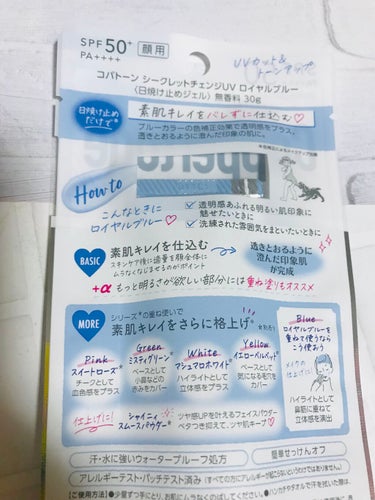 SPF50+
PA++++
顔用
UVカット&
トーンアップ
コパトーン シークレットチェンジUV ロイヤルブルー
〈日焼け止めジェル〉無香料 30g
日焼け止め
だけで*
素肌キレイをバレずに仕込む♡
ブルーカラーの色補正効果で透明感をプラス。
透きとおるように澄んだ印象の肌に。
How to
こんなときに
ロイヤルブルー♡
✓ 透明感あふれる明るい肌印象に
魅せたいときに
✓ 洗練された雰囲気をまといたいときに
BASIC
素肌キレイを仕込む
スキンケア後に適量を顔全体に
ムラなくなじませるのがポイント
透きとおるように
澄んだ印象肌
が完成
+α もっと明るさが欲しい部分には重ね塗りもオススメ
MORE
シリーズ*の重ね使いで
素肌キレイをさらに格上げ
Pink
スイートローズ*
チークとして
血色感をプラス
Green
ミスティグリーン*
ベースとして
小鼻などの
赤みをカバー
White
マシュマロホワイト*
ハイライトとして
立体感をプラス
Yellow
イエローベルベット*
ベースとして
気になる部分を
カバー
Blue
ロイヤルブルーを
重ねて使うなら
こう使おう
メイクの仕上げに!
ハイライトとして
鼻筋に重ねて
立体感を演出
仕上げに!
シャイニィ
スムースパウダー*
ツヤ感UPを叶えるフェイスパウダー
ベタつき抑えて、ツヤ肌キープ♡
汗・水に強いウォータープルーフ処方
簡単せっけんオフ
アレルギーテスト・パッチテスト済み
(すべての方にアレルギーが起こらないというわけではありません)